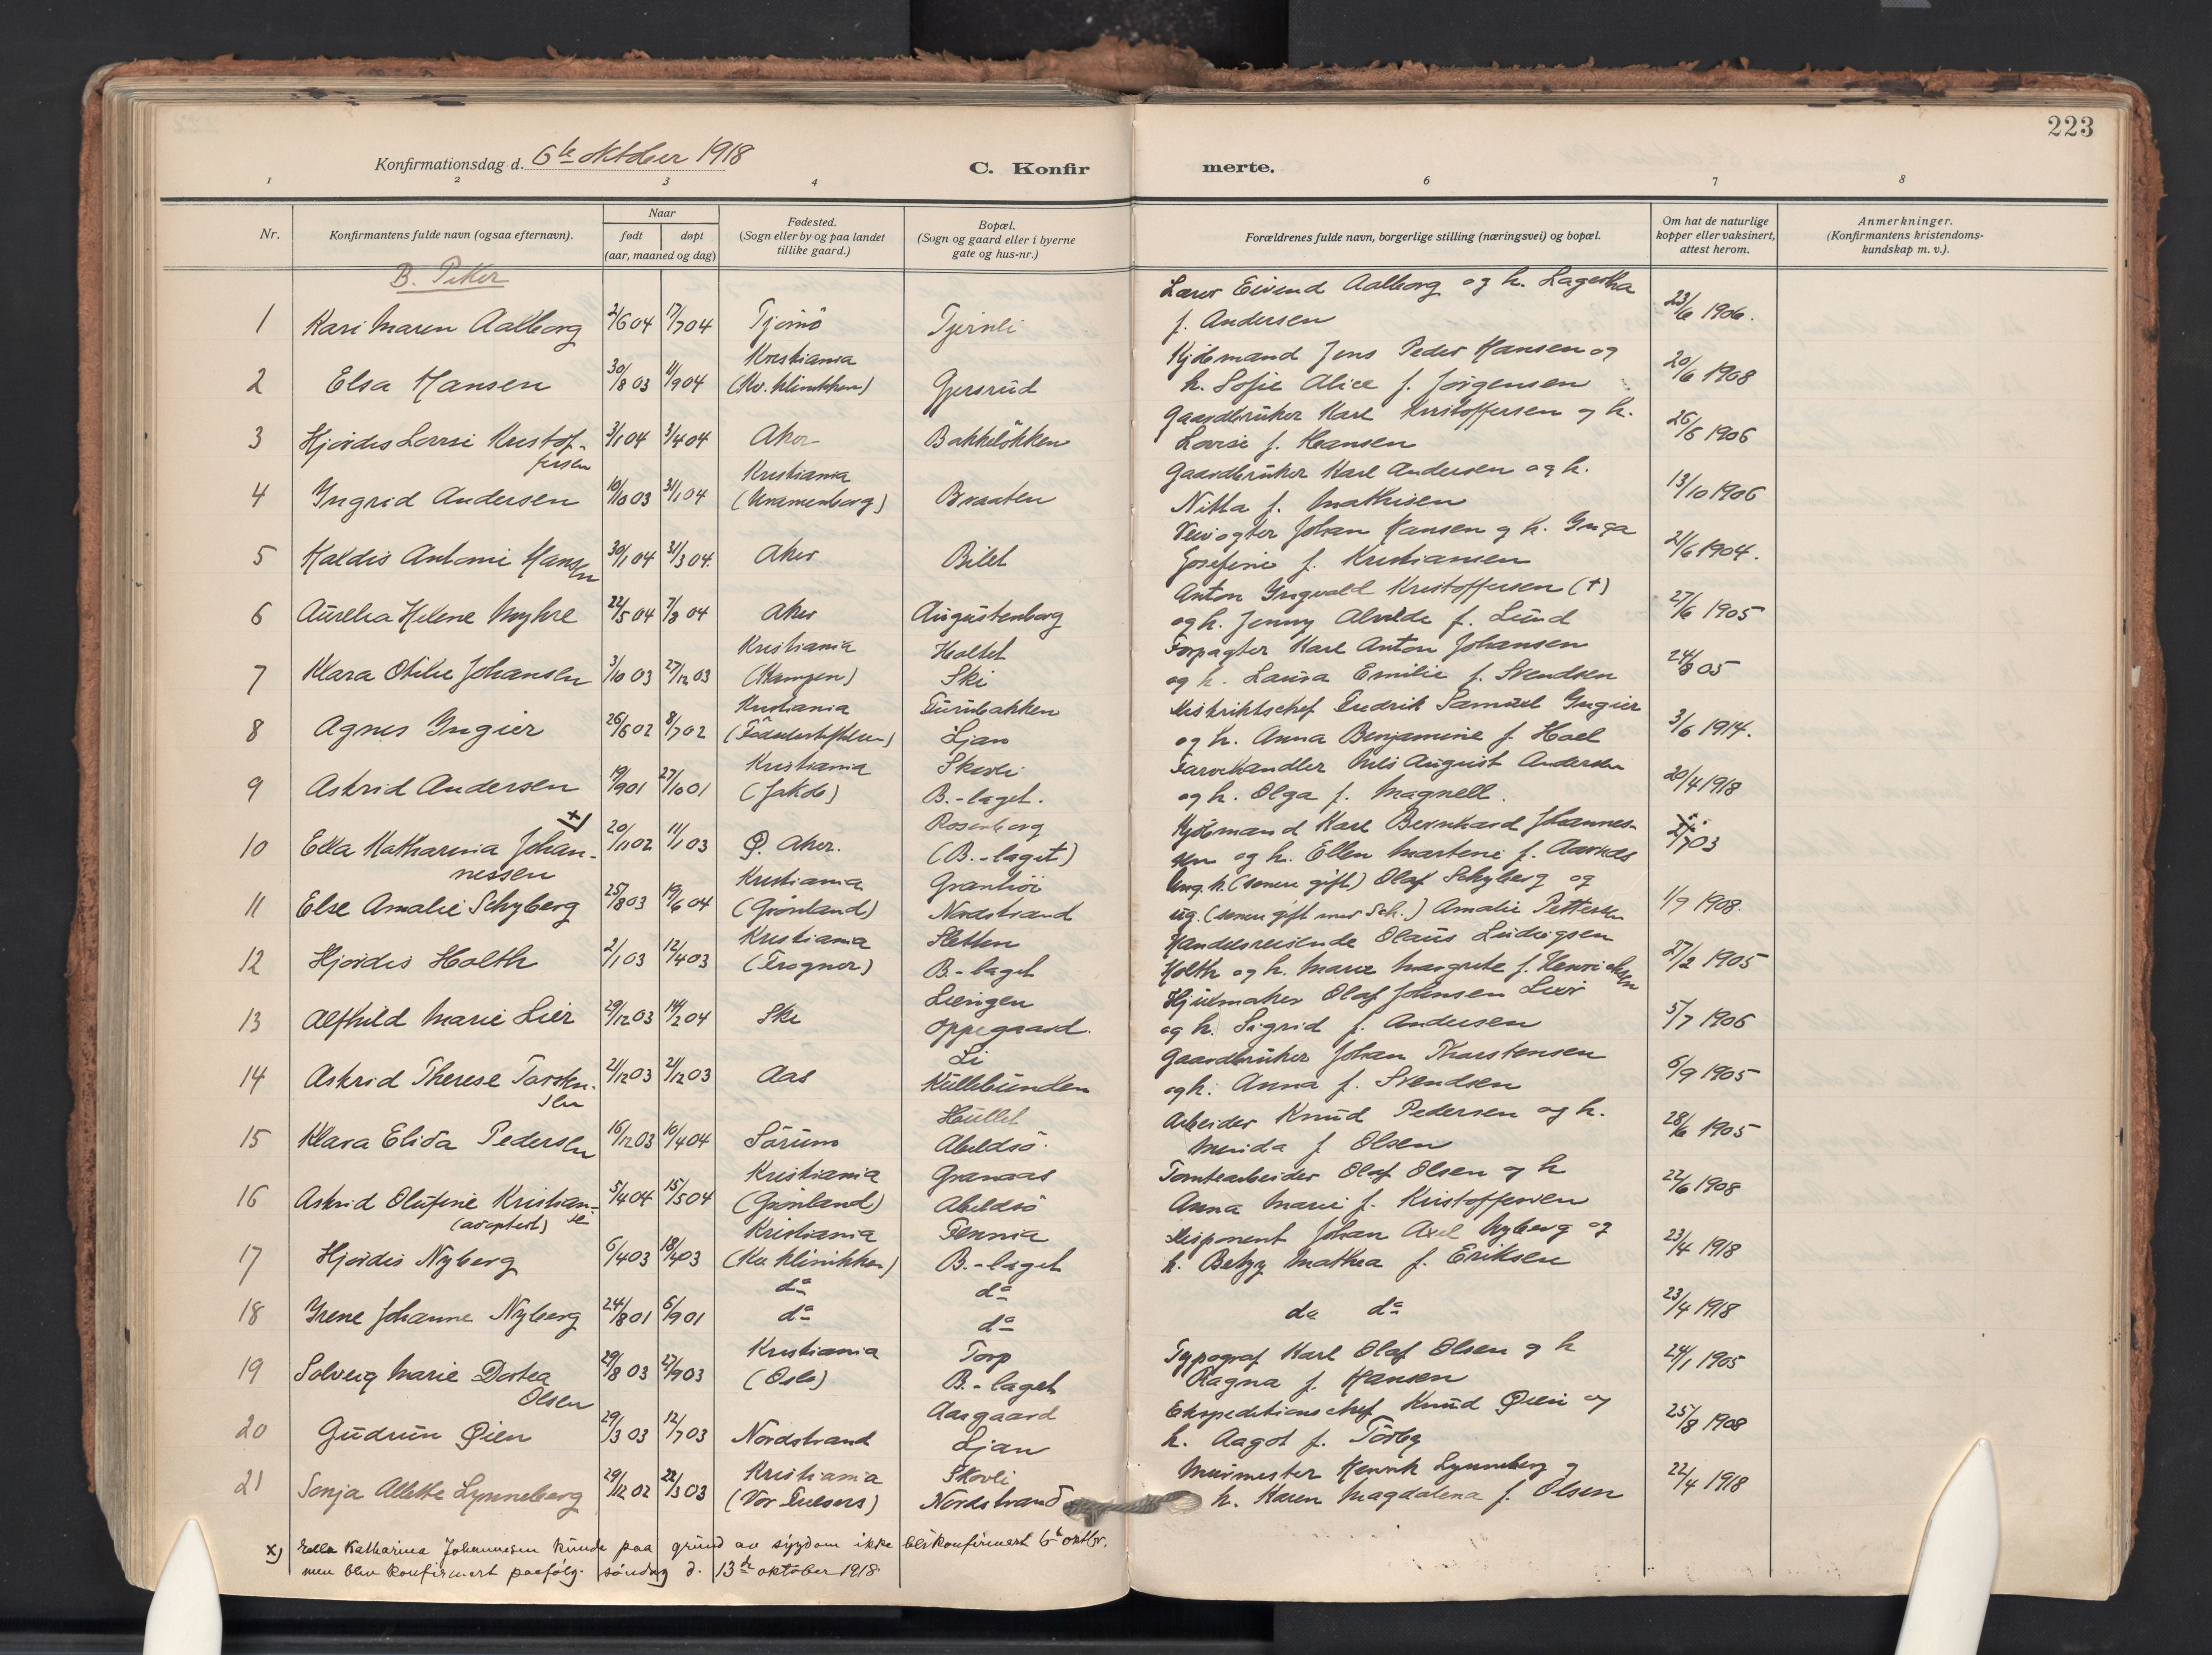 223
Konfirmationsdag d. 6te oktober 1918
C. Konfirmerte.
1 2 3 4 6 7 8
Nr.
Konfirmantens fulde navn (ogsaa efternavn).
Naar
født døpt
(aar, maaned og dag)
Fødested.
(Sogn eller by og paa landet
tillike gaard.)
Bopæl.
(Sogn og gaard eller i byerne
gate og hus-nr.)
Forældrenes fulde navn, borgerlige stilling (næringsvei) og bopæl.
Om hat de naturlige
kopper eller vaksinert,
attest herom.
Anmerkninger.
(Konfirmantens kristendoms-
kundskap m. v.).
B. Piker
Lærer Eivend Aalborg og h. Lagertha
1 Kari Maren Aalborg 2/6 04 17/7 04 Tjømø Tjernli f. Andersen 23/6 1906.
Kristiania Kjøbmand Jens Peder Hansen og
2 Elsa Hansen 30/8 03 11/9 04 (Kv. klinikken) Gjersrud h. Sofie Alice f. Jørgensen 20/6 1908
Gaardbruker Karl Kristoffersen og h.
3 Hjørdis Lovise Kristof- 3/1 04 3/4 04 Aker Bakkeløkken Lovise f. Hansen 26/6 1906
fersen
Kristiania Gaardbruker Karl Andersen og h.
4 Ingrid Andersen 10/10 03 31/1 04 (Uranienborg) Braaten f. Mathisen 13/10 1906
Veivogter Johan Hansen og h. Inga
5 Haldis Antonie Hansen 30/1 04 31/3 04. Aker Bilet Josefine f. Kristiansen 21/6 1904.
Anton Ingvald Kristoffersen (†)
6 Aurelia Helene Myhre 22/5 04 7/8 04 Aker Augustenborg og h. Jenny Alvilde f. Lund 27/6 1905
Kristiania Holtet Forpagter Karl Anton Johansen
7 Klara Otilie Johansen 3/10 03 27/12 03 (Kampen) Ski og h. Laura Emilie f. Svendsen 05
Kristiania Furubakken Distriktschef Fredrik Samuel Ingier
8 Agnes Ingier 26/6 02 8/7 02 (Fødselsstiftelsen) Ljan og h. Anna Benjamine f. Hoel 3/6 1914.
Kristiania Skovli Farvehandler Nils August Andersen
9 Astrid Andersen 19/9 01 27/10 01 (Jakobs) B.-laget. og h. Olga f. Magnell. 20/4 1918
x) Rosenborg Kjøbmand Karl Bernhard Johannes-
10 Ella Katharina Johan- 20/11 02 11/1 03 Ø. Aker. (B.-laget) sen og h. Ellen Martene f. 03
nessen
Kristiania Granhøi Ung.k. (senere gift) Olaf Schyberg og
11 Else Amalie Schyberg 25/8 03 19/6 04 (Grønland) Nordstrand ug. (senere gift med Sch.) Amalie Pettersen 1/9 1908.
Kristiania Sletten Handelsreisende Olaus Ludvigsen
12 Hjørdis Holth 2/1 03 12/4 03 (Frogner) B.-laget Holth og h. Marie Margrete f. Henriksen 27/2 1905
Lieingen Hjulmaker Olaf Johansen Lier
13 Alfhild Marie Lier 29/12 03 14/2 04 Ski Oppegaard. og h. Sigrid f. Andersen 5/7 1906
Li Gaardbruker Johan Thorstensen
14 Astrid Therese Torsten- 21/12 03 Aas Kullebunden og h. Anna f. Svendsen 6/9 1905
sen
Hullet Arbeider Knud Pedersen og h.
15 Klara Elida Pedersen 16/12 03 10/4 04 Sørum Abildsø. f. Olsen 28/6 1905
Kristiania Granaas Tomtearbeider Olaf Olsen og h
16 Astrid Olufine Kristian- 5/4 04 15/5 04 (Grønland) Abildsø Anna Marie f. Kristoffersen 22/6 1908
(adoptert) sen
Kristiania Fennia Disponent Johan Axel Nyberg og
17 Hjørdis Nyberg 6/4 03 18/4 03 (Kv. klinikken) B.-laget h. Betzy Mathea f. Eriksen 23/4 1918
do do
18 Irene Johanne Nyberg 24/8 01 6/9 01 do do do do 23/4 1918
Kristiania Torp Typograf Karl Olaf Olsen og h
19 Solveig Marie Dortea 29/8 03 27/9 03 (Oslo) B.-laget Ragna f. Hansen 24/1 1905
Olsen
Aasgaard Ekspeditionschef Knud Øien og
20 Gudrun Øien 29/3 03 12/7 03 Nordstrand Ljan h. Aagot f. Torby 25/8 1908
Kristiania Skovli Murmester Henrik Lynneberg og
21 Sonja Allette Lynneberg 29/12 02 22/3 03 (Vor Frelsers) Nordstrand h. Karen Magdalena f. Olsen 22/4 1918
x) Ella Katharina Johannesen kunde paa grund av sygdom ikke bli konfirmert 6te oktbr.
men blev konfirmert paafølg. søndag d. 13de oktober 1918